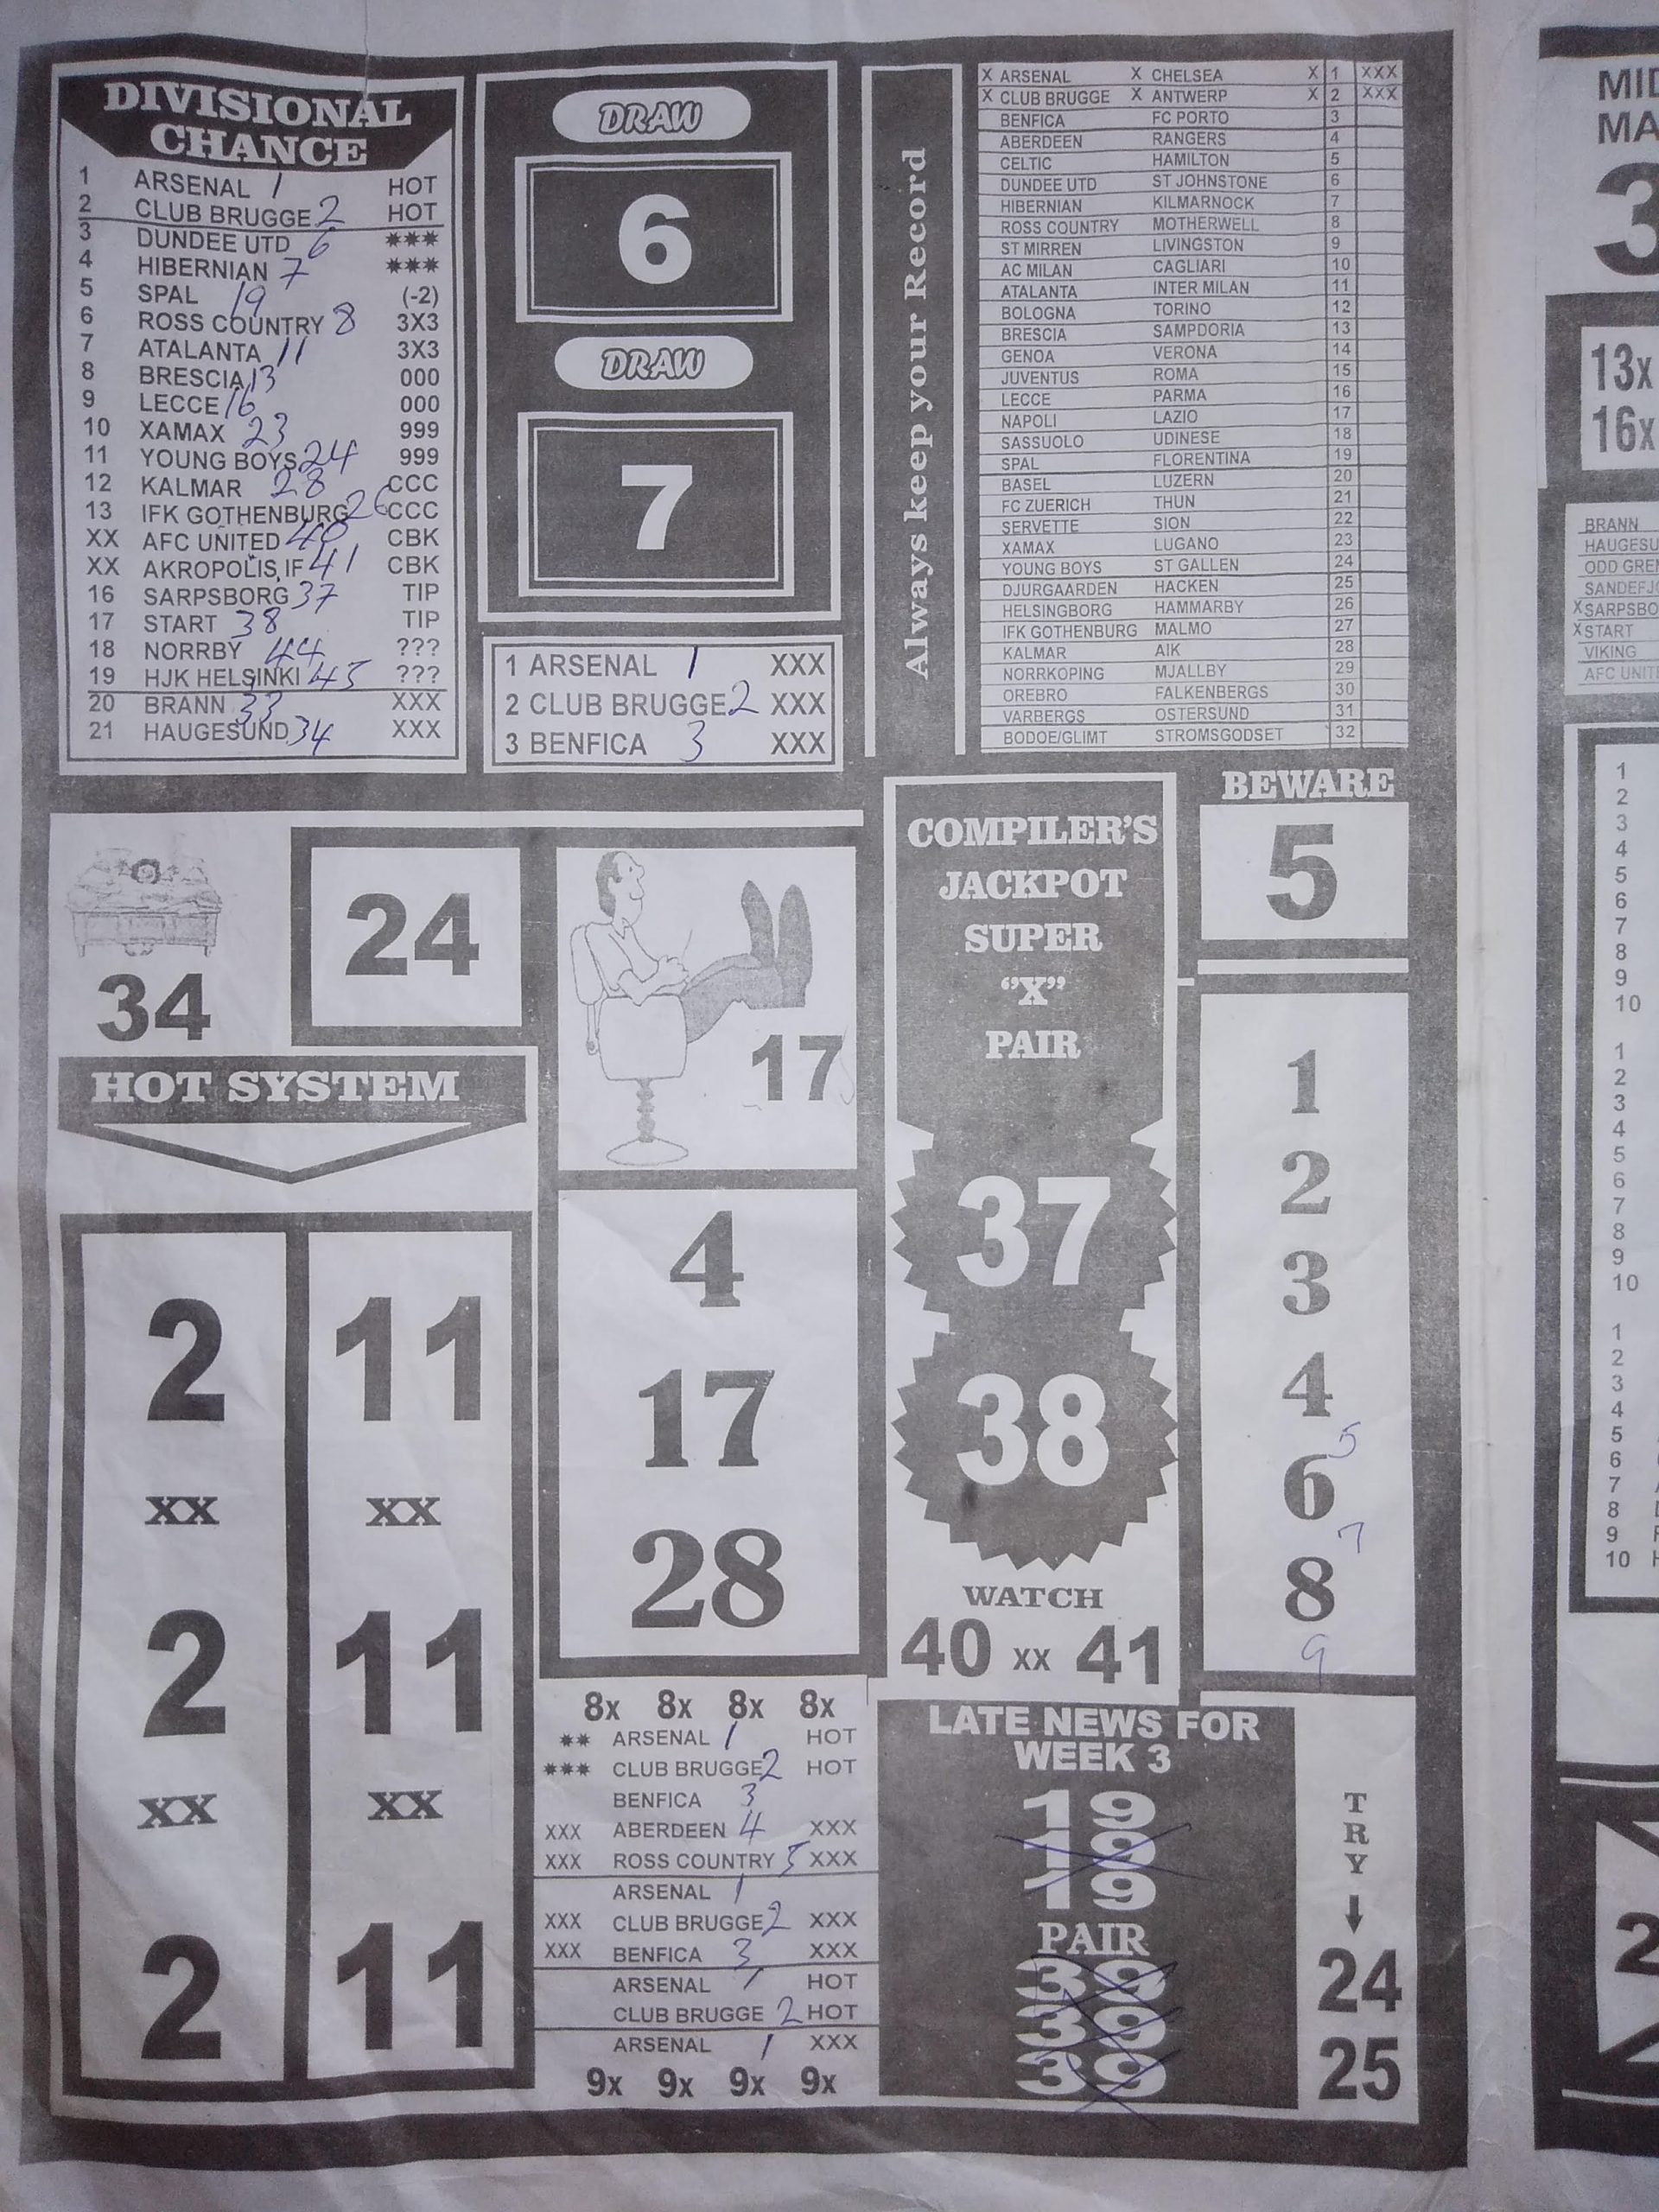 DIVISIONAL
CHANCE
1 ARSENAL 1 HOT
2 CLUB BRUGGE 2 HOT
3 DUNDEE UTD 6 ***
4 HIBERNIAN 7 ***
5 SPAL 19 (-2)
6 ROSS COUNTRY 8 3X3
7 ATALANTA 11 3X3
8 BRESCIA 13 000
9 LECCE 16 000
10 XAMAX 23 999
11 YOUNG BOYS 24 999
12 KALMAR 28 CCC
13 IFK GOTHENBURG 26 CCC
XX AFC UNITED 40 CBK
XX AKROPOLIS IF 41 CBK
16 SARPSBORG 37 TIP
17 START 38 TIP
18 NORRBY 44 ???
19 HJK HELSINKI 45 ???
20 BRANN 33 XXX
21 HAUGESUND 34 XXX
DRAW
6
DRAW
7
1 ARSENAL 1 XXX
2 CLUB BRUGGE 2 XXX
3 BENFICA 3 XXX
Always keep your Record
X ARSENAL X CHELSEA X 1 XXX
X CLUB BRUGGE X ANTWERP X 2 XXX
BENFICA FC PORTO 3
ABERDEEN RANGERS 4
CELTIC HAMILTON 5
DUNDEE UTD ST JOHNSTONE 6
HIBERNIAN KILMARNOCK 7
ROSS COUNTRY MOTHERWELL 8
ST MIRREN LIVINGSTON 9
AC MILAN CAGLIARI 10
ATALANTA INTER MILAN 11
BOLOGNA TORINO 12
BRESCIA SAMPDORIA 13
GENOA VERONA 14
JUVENTUS ROMA 15
LECCE PARMA 16
NAPOLI LAZIO 17
SASSUOLO UDINESE 18
SPAL FLORENTINA 19
BASEL LUZERN 20
FC ZUERICH THUN 21
SERVETTE SION 22
XAMAX LUGANO 23
YOUNG BOYS ST GALLEN 24
DJURGAARDEN HACKEN 25
HELSINGBORG HAMMARBY 26
IFK GOTHENBURG MALMO 27
KALMAR AIK 28
NORRKOPING MJALLBY 29
OREBRO FALKENBERGS 30
VARBERGS OSTERSUND 31
BODOE/GLIMT STROMSGODSET 32
34
24
17
HOT SYSTEM
2 11
XX XX
2 11
XX XX
2 11
4
17
28
8x 8x 8x 8x
** ARSENAL 1 HOT
*** CLUB BRUGGE 2 HOT
BENFICA 3
XXX ABERDEEN 4 XXX
XXX ROSS COUNTRY 5 XXX
ARSENAL 1
XXX CLUB BRUGGE 2 XXX
XXX BENFICA 3 XXX
ARSENAL 1 HOT
CLUB BRUGGE 2 HOT
ARSENAL 1 XXX
9x 9x 9x 9x
COMPILER'S
JACKPOT
SUPER
"X"
PAIR
37
38
WATCH
40 XX 41
LATE NEWS FOR
WEEK 3
19
19
19
PAIR
39
39
39
BEWARE
5
1
2
3
4
5
6
7
8
9
TRY
24
25
13x
16x
BRANN
SANDEFJ
X SARPSBO
X START
VIKING
1
2
3
4
5
6
7
8
9
10
1
2
3
4
5
6
7
8
9
10
1
2
3
4
5
6
7
8
9
10